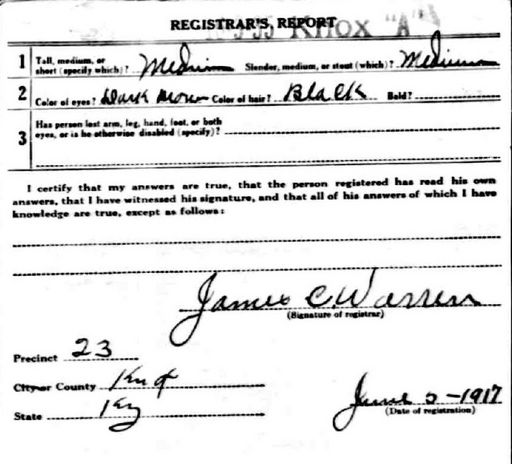 REGISTRAR'S REPORT
KNOX "A"
1 Tall, medium, or short (specify which)? Medium Slender, medium, or stout (which)? Medium
2 Color of eyes? Dark Brow Color of hair? Black Bald?
3 Has person lost arm, leg, hand, foot, or both
eyes, or is he otherwise disabled (specify)?
I certify that my answers are true, that the person registered has read his own
answers, that I have witnessed his signature, and that all of his answers of which I have
knowledge are true, except as follows:
James C. Warren
(Signature of registrar)
Precinct 23
City or County Knox
State Ky
June 5-1917
(Date of registration)